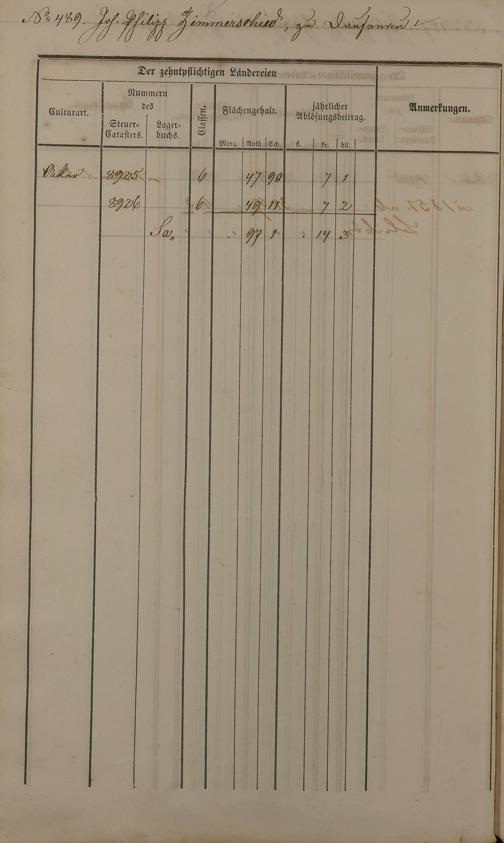 No. 489. Joh. Philipp Zimmerschied, zu Dausenau
Der zehntpflichtigen Ländereien
Culturart. Nummern des Classen. Flächengehalt. jährlicher Ablösungsbeitrag. Anmerkungen.
Steuer-Catasters. Lager-buchs.
Morg. Ruth. Sch. fl. kr. hll.
8925 6 47 90 7 1
8926 6 49 11 7 2
Sa. 97 1 14 3